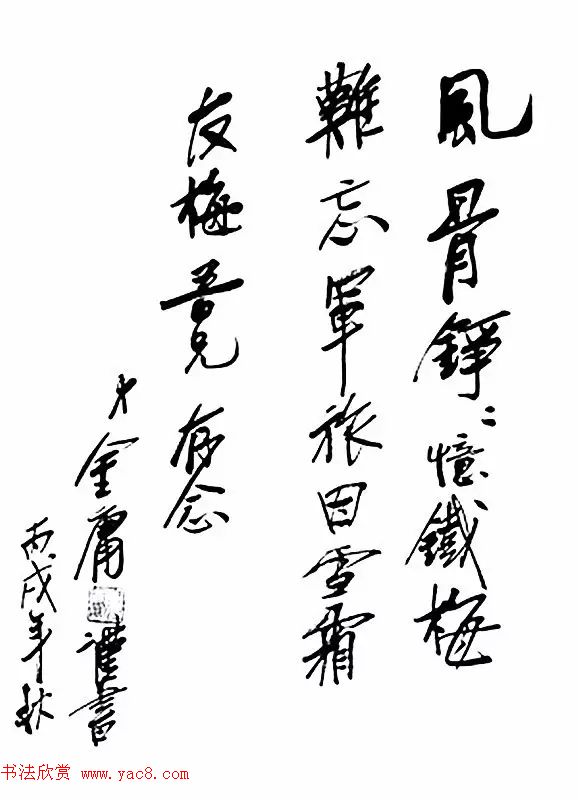 風骨錚〻憶鐵梅
難忘軍旅因雪霜
友梅吾兄存念
弟金庸謹書
丙戌年秋
书法欣赏 www.yac8.com